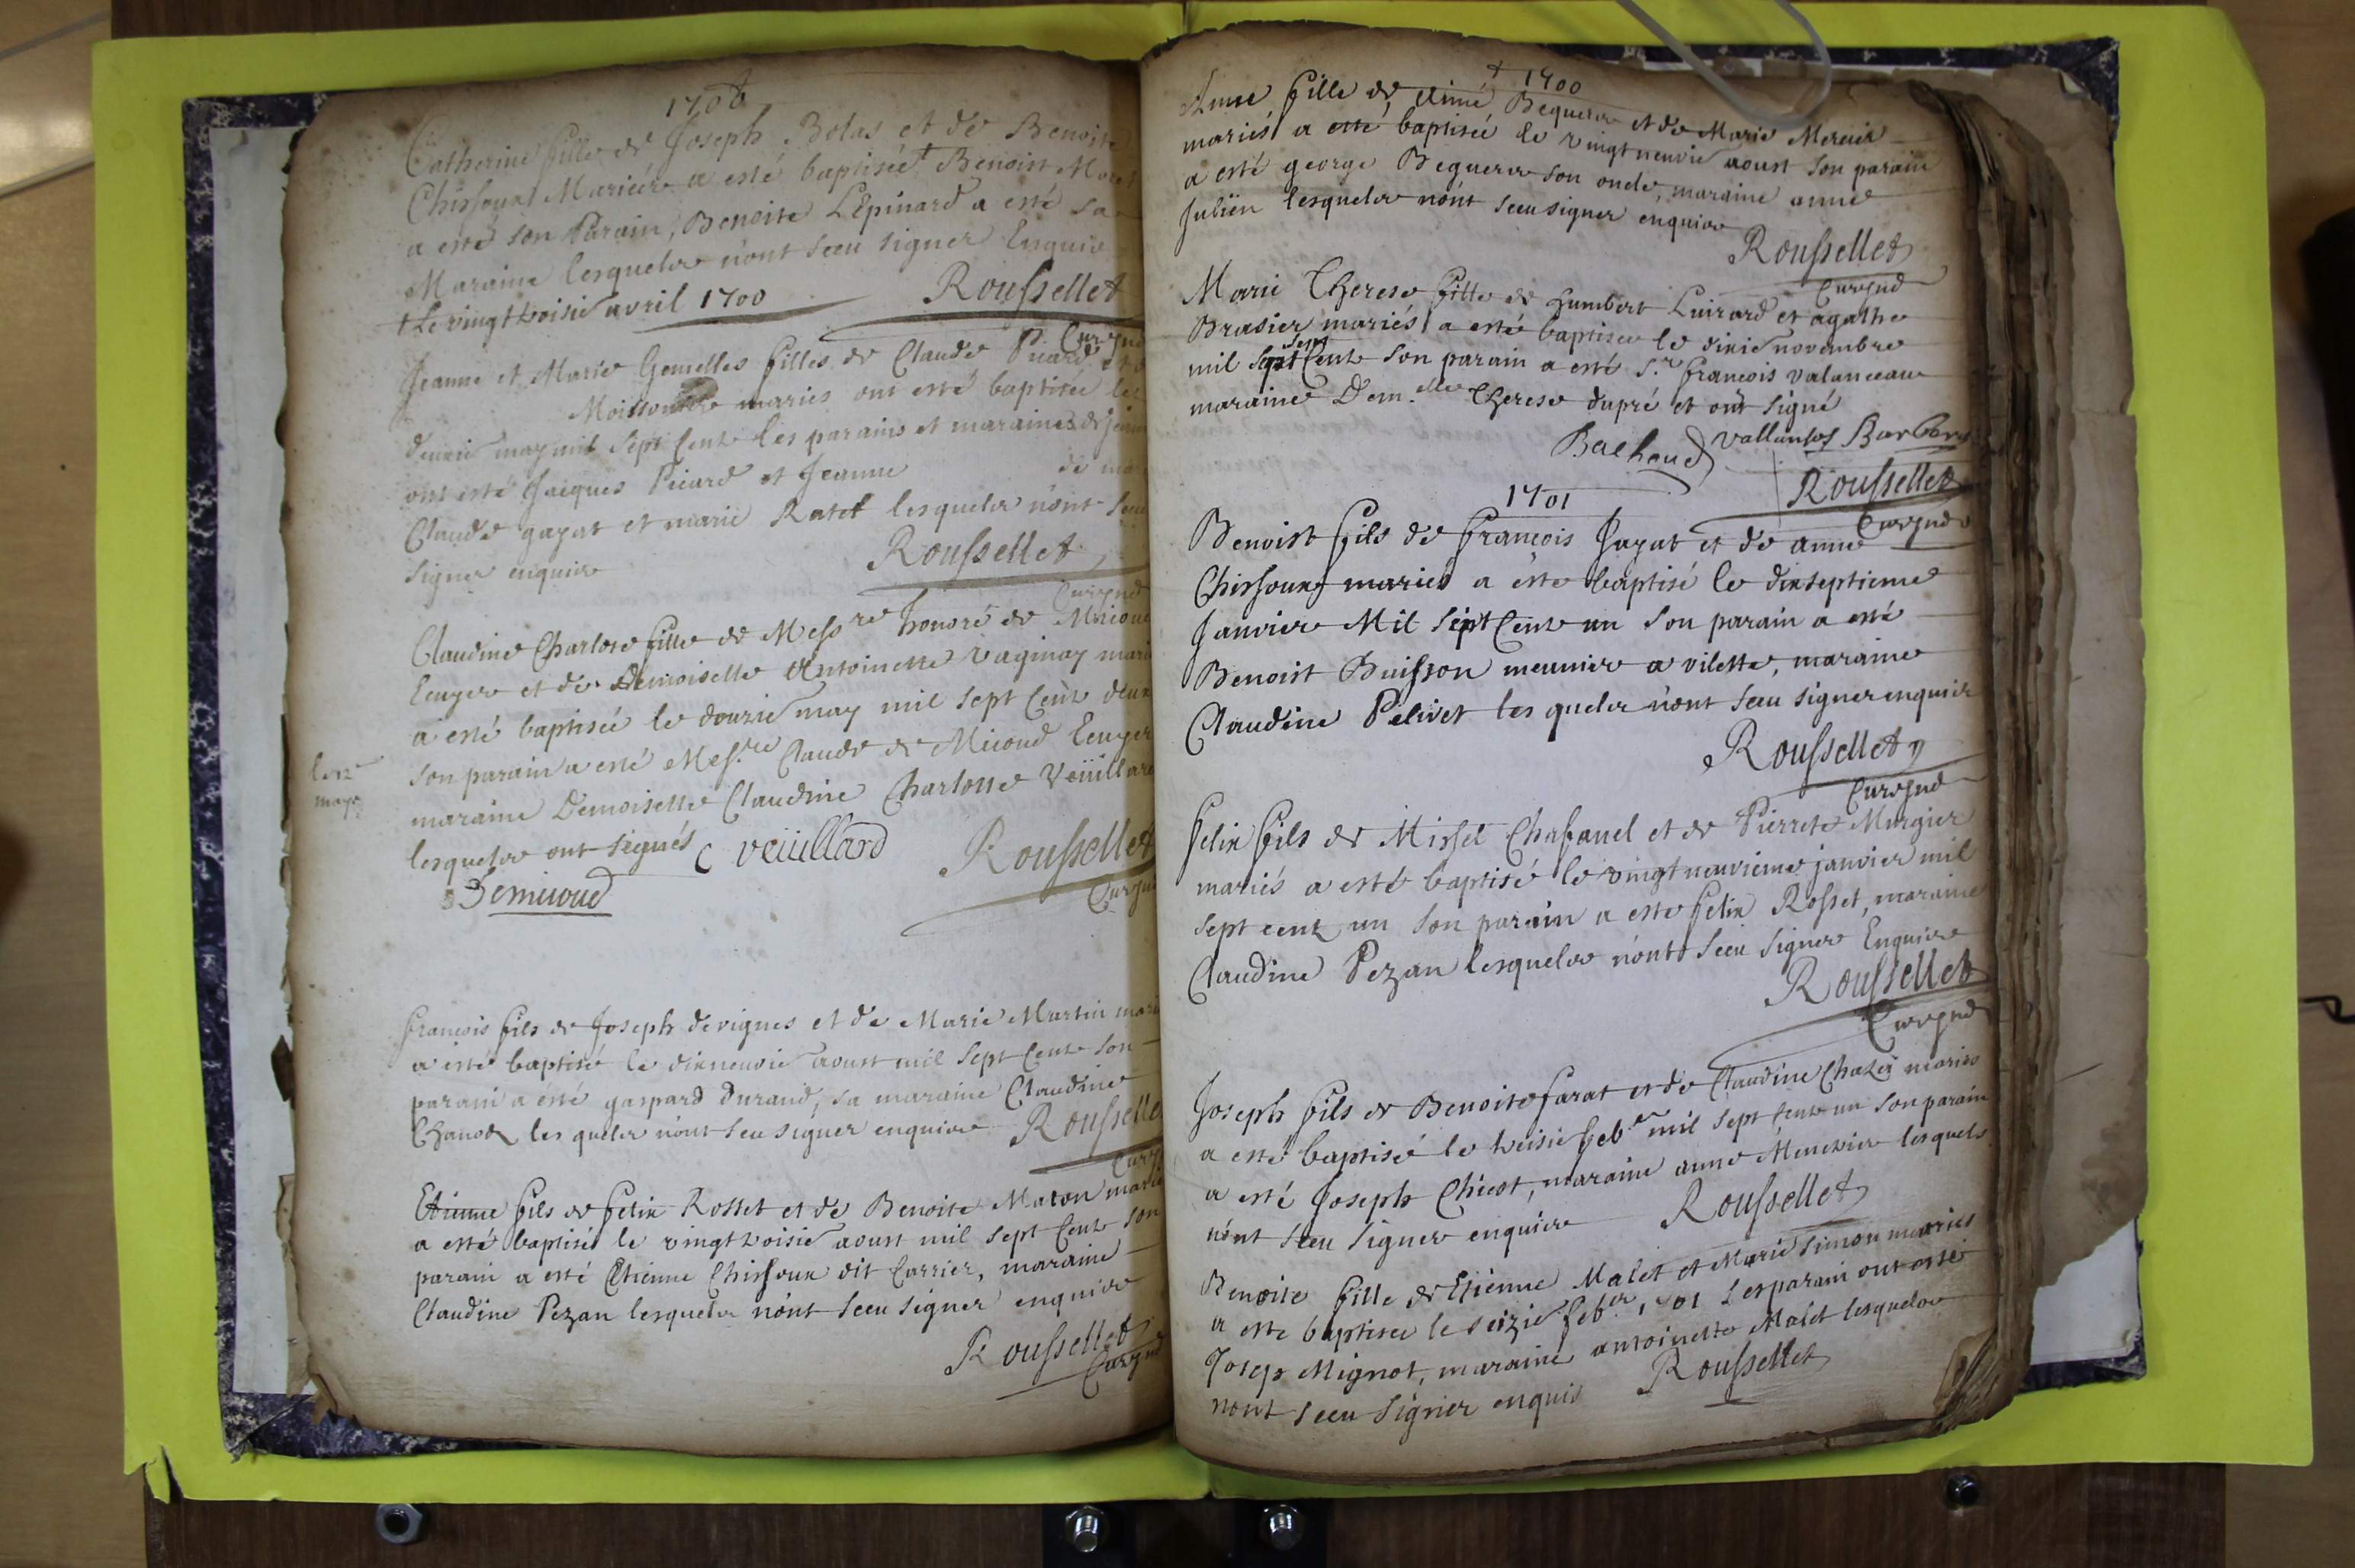 1700
Catherine fille de Joseph Bolas et de Benoite
Chissoual Mariés a esté baptisée + Benoist
a esté son Parain, Benoite L'Epinard a esté sa
Maraine lesquels n'ont sceu signer Enquis
+ Le vingt troisie avril 1700 Roussellet
Curé
Jeanne et Marie Gemelles filles de Claude Picard et
maries ont esté baptisée les
may mil sept Cent les parains et maraines de
ont esté Jacques Picard et Jeanne de
Claude gayat et marie Ratet lesquels n'ont sceu
signer enquis Roussellet
Claudine Charlote fille de Messre honoré de
Ecuyer et de Demoiselle Antoinette Vaginay
a esté baptisée le douzie may mil sept Cent
le 12
may
son parain a esté Mesre Claude de Micoud Ecuyer
maraine Demoiselle Claudine Charlotte Veüillard
lesquels ont signés C veüillard Roussellet
Demicoud
francois fils de Joseph devignes et de Marie Martin
a esté baptisé le dixneuvie aoust mil sept Cent son
parain a ésté gaspard Durand, sa maraine Claudine
les quels n'ont sceu signer enquis Roussellet
Etienne fils de felix Rosset et de Benoite Maton
a esté baptisé le vingt troisie aoust mil sept Cent son
parain a esté Etienne Chissoux dit Carrier, maraine
Claudine Pezan lesquels n'ont sceu signer enquis
Roussellet
+ 1700
Anne fille de Aimé Beguere et de Marie Mercier
mariés a esté baptisée le vingt neuvie aoust son parain
a esté george Beguere son oncle, maraine anne
Julien lesquels n'ont sceu signer enquis
Roussellet
Marie Therese fille de humbert Luirard et agathe
Brasier mariés a esté baptisee le dixie novembre
sept
mil Cent son parain a esté Sr francois valanceau
maraine Dem.elle Therese dupré et ont signé
Roussellet
1701
Benoist fils de francois Jayat et de anne
Chissoux mariés a éste baptisé le dixseptieme
Janvier Mil sept Cent un son parain a esté
Benoist Buisson meunier a vilette, maraine
Claudine Pelivet les quels n'ont sceu signer enquis
Roussellet
felix fils de Missel Chafanel et de Pierrete Murgier
mariés a esté baptisé le vingt neuvieme janvier mil
sept cent un son parain a esté felix Rosset, maraine
Claudine Pezan lesquels n'ont sceu signer Enquis
Roussellet
Joseph fils de Benoite farat et de Claudine Chazei mariés
a esté baptisé le treisie feb.er mil sept cent un son parain
a esté Joseph Chicot, maraine anne lesquels
n'ont sceu signer enquis Roussellet
Benoite fille de Etienne Malet et Marie Simon mariés
a esté baptisee le seizie feb.er 1701 Les parain ont esté
Josep Mignot, maraine antoinette Malet lesquels
n'ont sceu signer enquis Roussellet